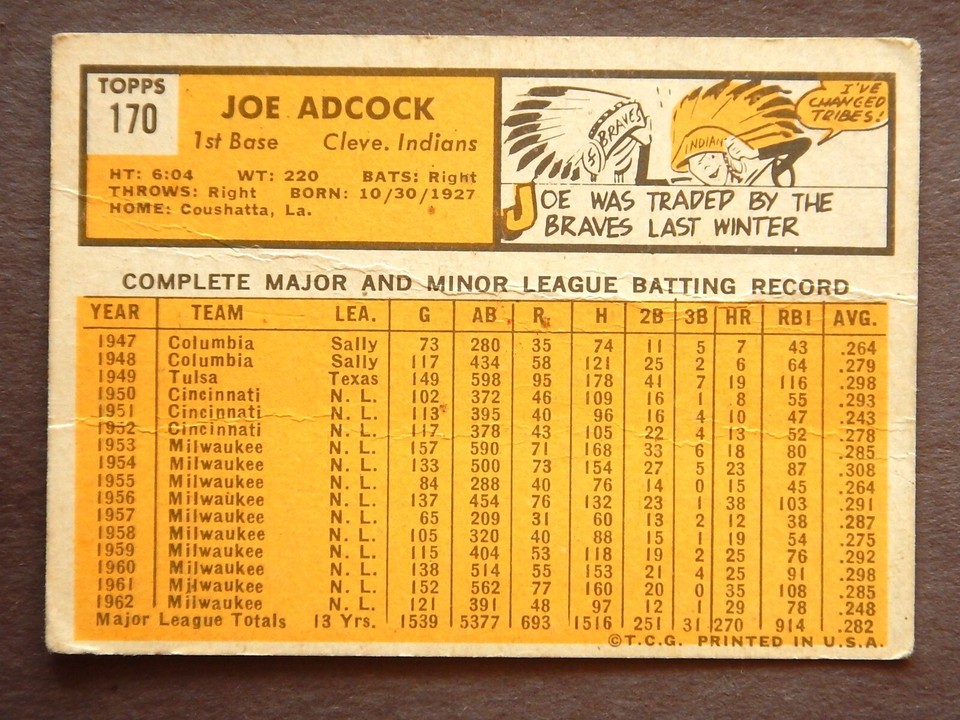 TOPPS
170
JOE ADCOCK
1st Base Cleve. Indians
HT: 6:04 WT: 220 BATS: Right
THROWS: Right BORN: 10/30/1927
HOME: Coushatta, La.
BRAVES
INDIAN
I'VE
CHANGED
TRIBES!
JOE WAS TRADED BY THE
BRAVES LAST WINTER
COMPLETE MAJOR AND MINOR LEAGUE BATTING RECORD
YEAR TEAM LEA. G AB R. H 2B 3B HR RBI AVG.
1947 Columbia Sally 73 280 35 74 11 5 7 43 .264
1948 Columbia Sally 117 434 58 121 25 2 6 64 .279
1949 Tulsa Texas 149 598 95 178 41 7 19 116 .298
1950 Cincinnati N. L. 102 372 46 109 16 1 8 55 .293
1951 Cincinnati N. L. 113 395 40 96 16 4 10 47 .243
1952 Cincinnati N. L. 117 378 43 105 22 4 13 52 .278
1953 Milwaukee N. L. 157 590 71 168 33 6 18 80 .285
1954 Milwaukee N. L. 133 500 73 154 27 5 23 87 .308
1955 Milwaukee N. L. 84 288 40 76 14 0 15 45 .264
1956 Milwaukee N. L. 137 454 76 132 23 1 38 103 .291
1957 Milwaukee N. L. 65 209 31 60 13 2 12 38 .287
1958 Milwaukee N. L. 105 320 40 88 15 1 19 54 .275
1959 Milwaukee N. L. 115 404 53 118 19 2 25 76 .292
1960 Milwaukee N. L. 138 514 55 153 21 4 25 91 .298
1961 Milwaukee N. L. 152 562 77 160 20 0 35 108 .285
1962 Milwaukee N. L. 121 391 48 97 12 1 29 78 .248
Major League Totals 13 Yrs. 1539 5377 693 1516 251 31 270 914 .282
©T.C.G. PRINTED IN U.S.A.